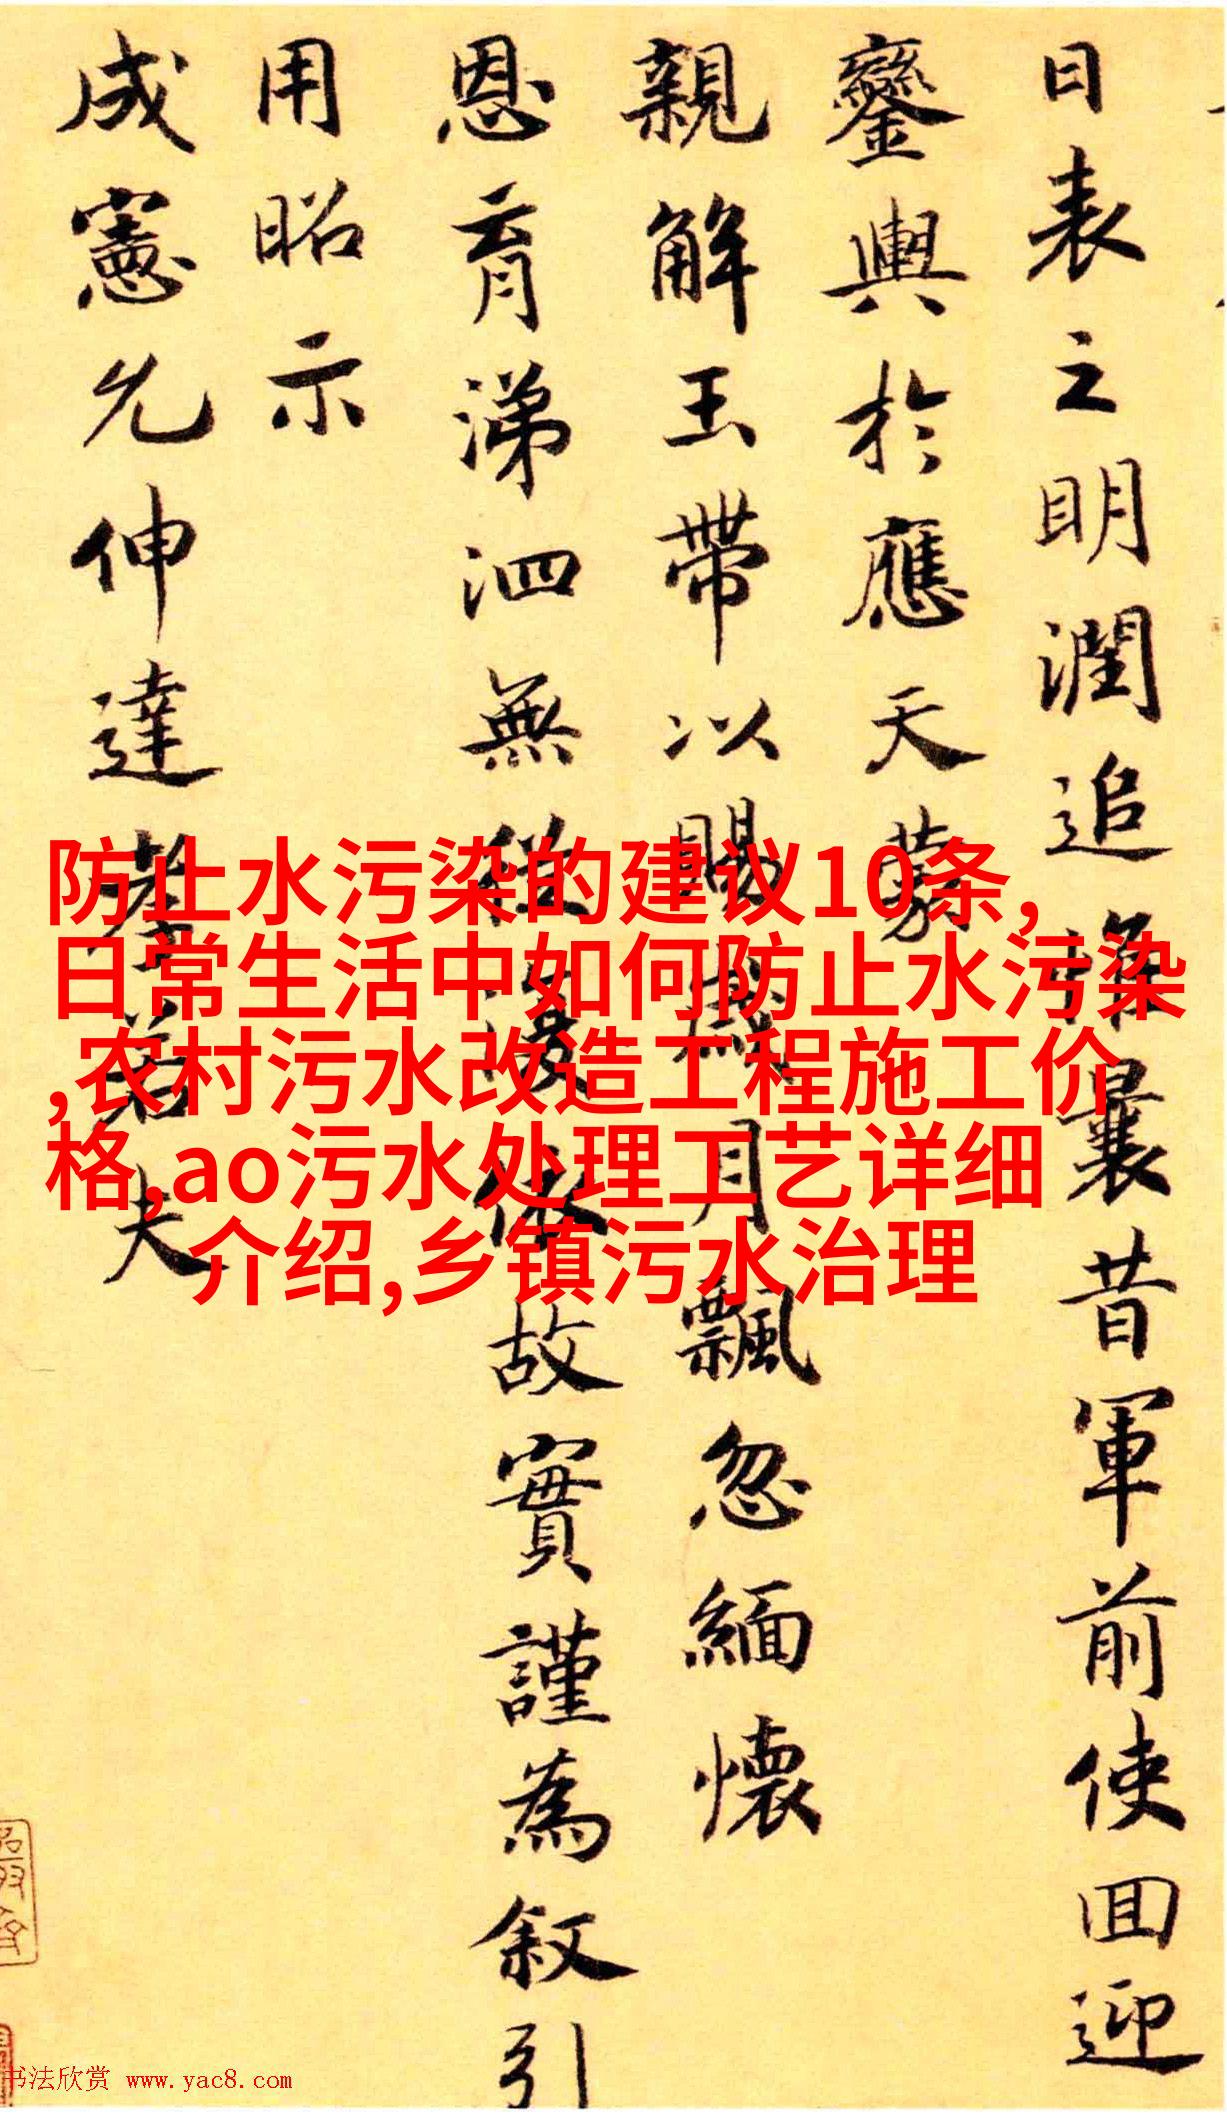 日表之明潤追惟曩昔軍前使回迎
鑾輿於應天蒙
親解玉帶以賜歲月飄忽緬懷
恩育涕泗無從故實謹為叙引
用昭示
成憲允伸達孝若夫
防止水污染的建议10条,
日常生活中如何防止水污染
,农村污水改造工程施工价
格,ao污水处理工艺详细
介绍,乡镇污水治理
书法欣赏 www.yac8.com